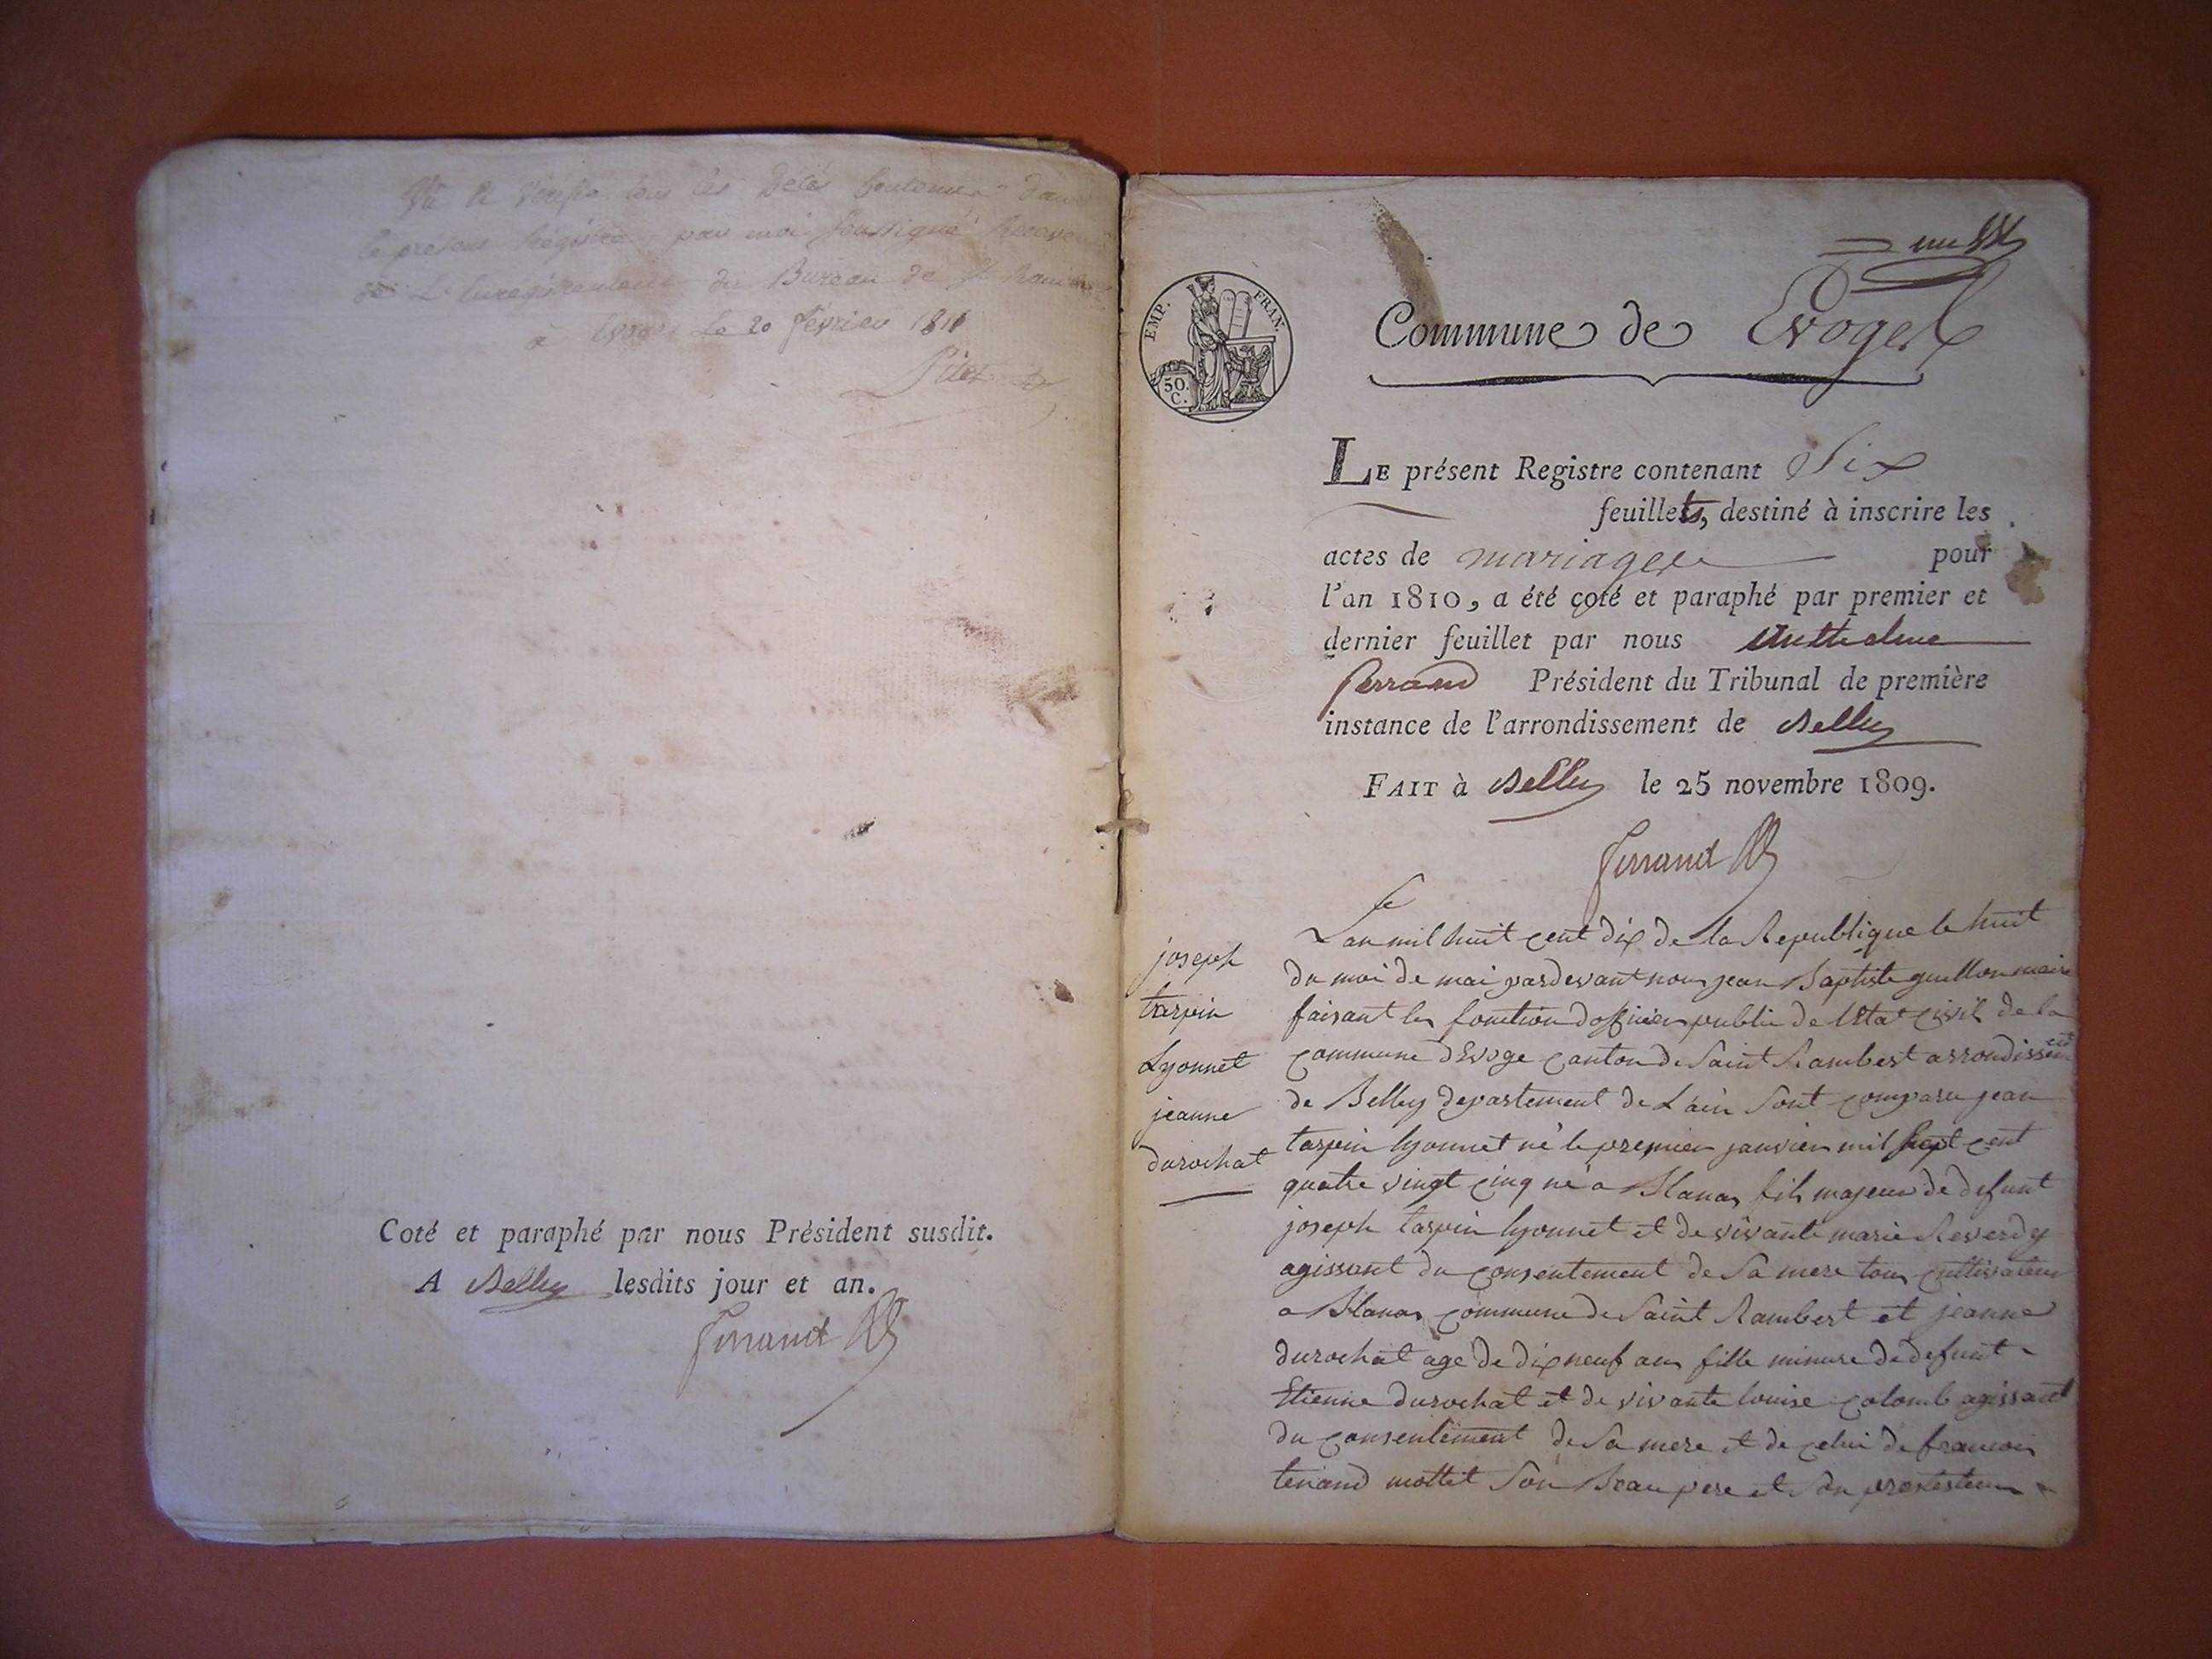 Vû et vérifié tous les Actes Contenus dans
le présent Régistre, par moi soussigné Receveur
de L'Enregistrement du Bureau de St. Rambert
à le 20 février 1811
Coté et paraphé par nous Président susdit.
A Belley lesdits jour et an.
Ferrand
EMP. FRAN.
50.
C.
un
Commune de Evoges
LE présent Registre contenant Six
feuillets, destiné à inscrire les
actes de mariages pour
l'an 1810, a été coté et paraphé par premier et
dernier feuillet par nous Anthelme
Ferrand Président du Tribunal de première
instance de l'arrondissement de Belley
FAIT à Belley le 25 novembre 1809.
Ferrand
joseph
tarpin
Lyonnet
jeanne
durochat
Lan mil huit cent dix de la Republique le huit
du moi de mai pardevant nous jean Baptiste guillon maire
faisant les fonction dofficier public de lEtat civil de la
commune dEvoge canton de Saint Rambert arrondissemt
de Belley departement de Lain Sont comparu jean
tarpin lyonnet né le premier janvier mil Sept cent
quatre vingt cinq né a Blanas fils majeur de defunt
joseph tarpin lyonnet et de vivante marie Reverdy
agissant du consentement de Sa mere tous cultivateur
a Blanas commune de Saint Rambert et jeanne
durochat age de dix neuf ans fille mineure de defunt
Etienne durochat et de vivante louise colomb agissant
du consentement de Sa mere et de celui de francois
tenand mottet Son Beau pere et Son protesteur